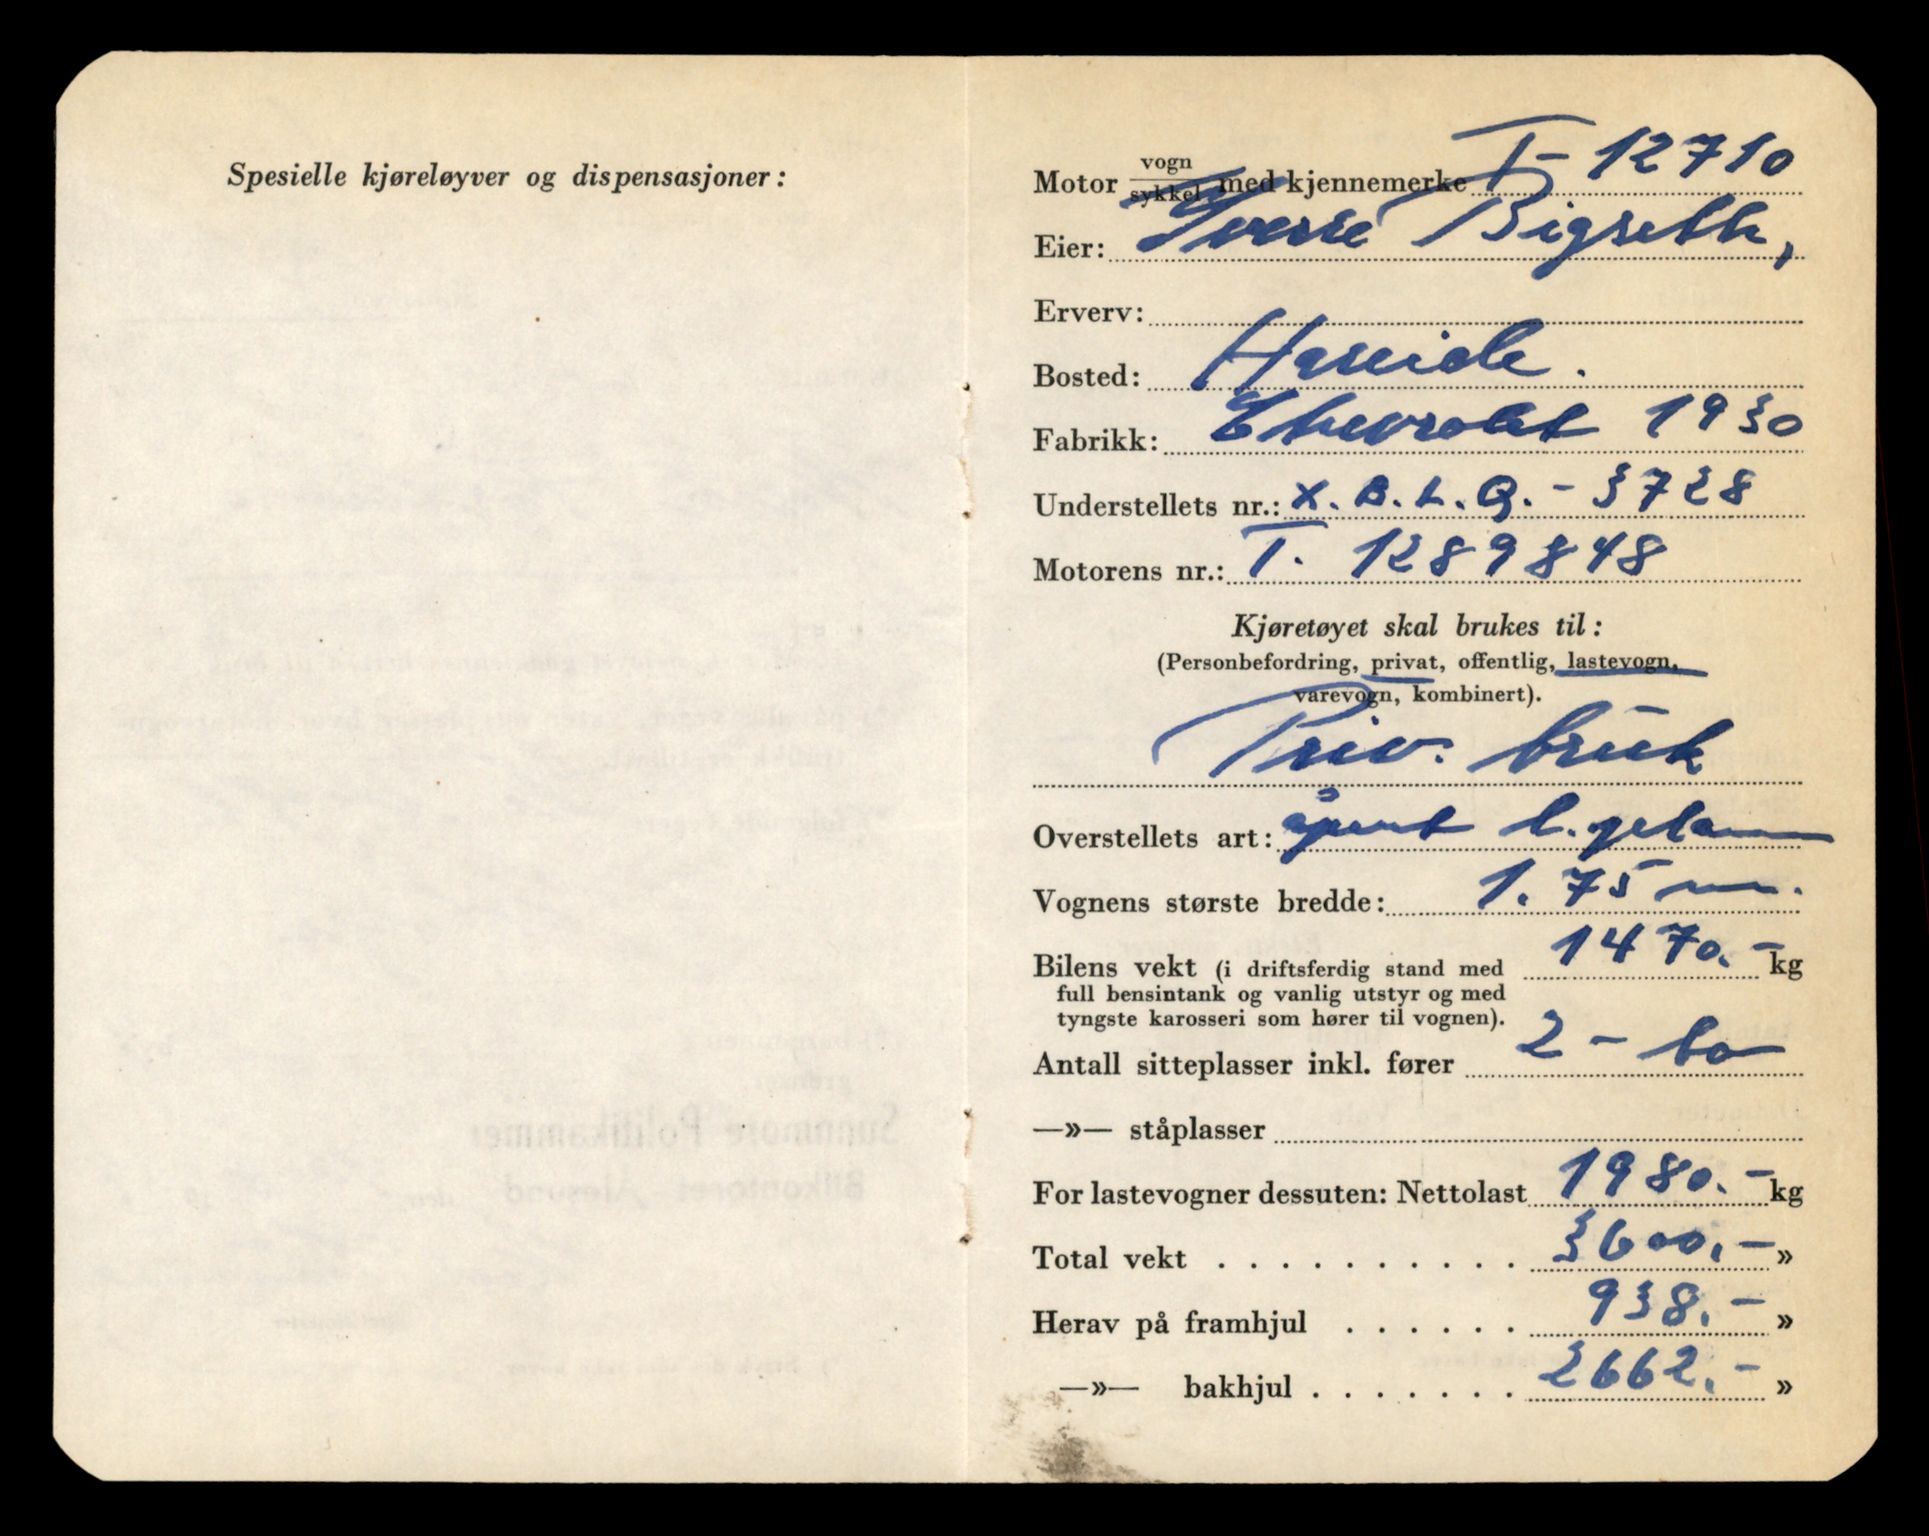 Spesielle kjøreløyver og dispensasjoner:
Motor vogn/sykkel med kjennemerke T- 12710
Eier: Sverre Bigseth,
Erverv:
Bosted: Hareide.
Fabrikk: Chevrolet 1930
Understellets nr.: X.B.L.Q. - 3728
Motorens nr.: T. 1289848
Kjøretøyet skal brukes til:
(Personbefordring, privat, offentlig, lastevogn,
varevogn, kombinert).
Priv. bruk
Overstellets art: åpent l.
Vognens største bredde: 1.75 m.
Bilens vekt (i driftsferdig stand med 1470.- kg
full bensintank og vanlig utstyr og med
tyngste karosseri som hører til vognen).
Antall sitteplasser inkl. fører 2 - to
—»— ståplasser
For lastevogner dessuten: Nettolast 1980.- kg
Total vekt . . . . . . . . . . 3600.- »
Herav på framhjul . . . . . . 938.- »
—»— bakhjul . . . . . . . 2662.- »